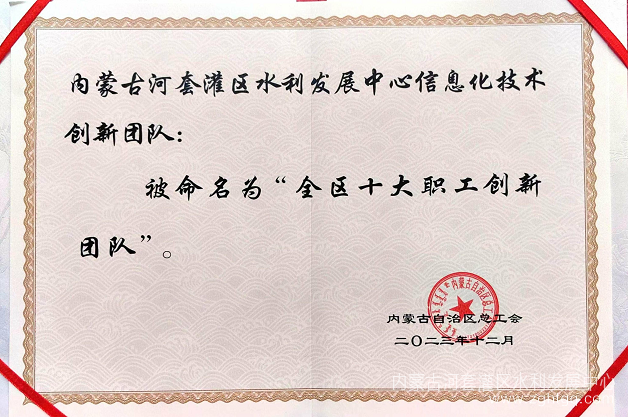 内蒙古河套灌区水利发展中心信息化技术
创新团队：
被命名为“全区十大职工创新
团队”。
内蒙古自治区总工会
二〇二三年十二月
内蒙古河套灌区水利发展中心